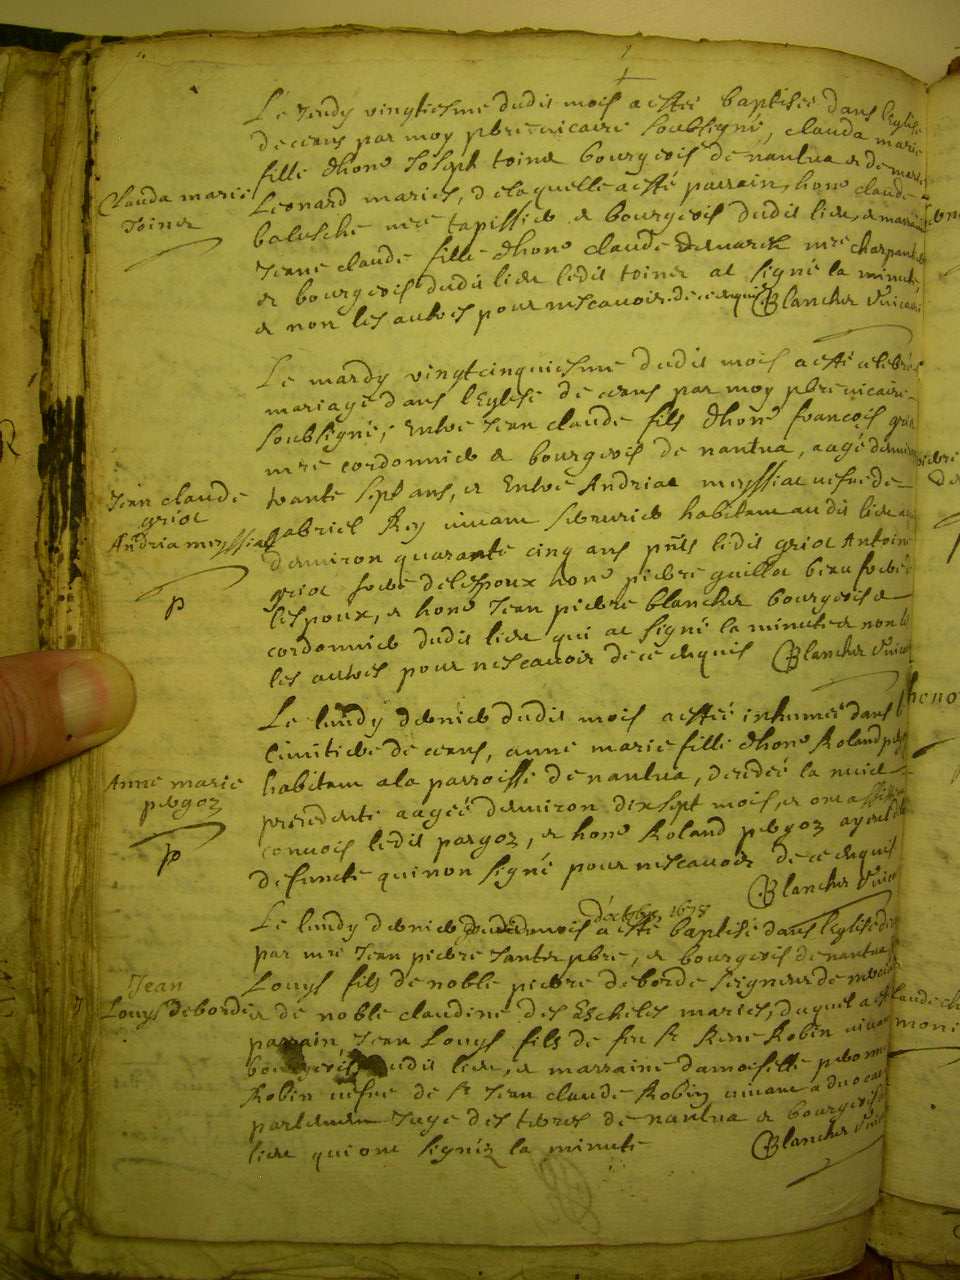 Le Jeudy vingtiesme dudit mois a esté baptisée dans l'Eglise
de ceans par moy pbre vicaire soubsigné, clauda marie
fille d'hone Joseph toinet bourgeois de nantua et de
Clauda marie
Toinet
Leonard mariés, de laquelle a esté parrain, hone claude
mre tapissier et bourgeois dudit lieu, et
Jeane claude fille d'hone claude mre charpantier
et bourgeois dudit lieu ledit toinet at signé la minute,
et non les autres pour ne scavoir de ce enquis Blanchet vicaire
Le mardy vingtcinquiesme dudit mois a esté celebré
mariage dans l'Eglise de ceans par moy pbre vicaire
soubsigné, Entre Jean claude fils d'hone françois griot
mre cordonnier et bourgeois de nantua, aagé denviron
trante sept ans, et Entre Andriaz meyssiat vefve de
Jean claude
griot
Andria meyssiat
p
gabriel Rey vivant serrurier habitant audit lieu
denviron quarante cinq ans pnts ledit griot Antoine
griot frere de lespoux hone pierre guillot beau frere
lespoux, et hone Jean pierre blanchet bourgeois et
cordonnier dudit lieu qui at signé la minute et non
les autres pour ne scavoir de ce enquis Blanchet vicaire
Le lundy dernier dudit mois a esté inhumée dans
cimitiere de ceans, anne marie fille d'hone Roland
Anne marie
pergoz
p
habitant a la parroisse de nantua, decedée la nuict
precedente aagée denviron dixsept mois, et ont assisté
convois ledit pergoz, et hone Roland pergoz ayeul
defuncte qui n'on signé pour ne scavoir de ce enquis
Blanchet vicaire
décembre 1678
Le lundy dernier dudit mois a esté baptisé dans l'Eglise de
par mre Jean pierre pbre, et bourgeois de nantua
Jean
Louys deborde
Louys fils de noble pierre deborde seigneur de
et de noble claudine des Eschelles mariés, duquel a esté
parrain Jean Louys fils de feu sr Rene Robin vivant
bourgeois dudit lieu, et marraine damoiselle
Robin vefve de sr Jean claude Robin vivant advocat
parlement Juge des terres de nantua et bourgeois
lieu qui ont signéz la minute Blanchet vicaire